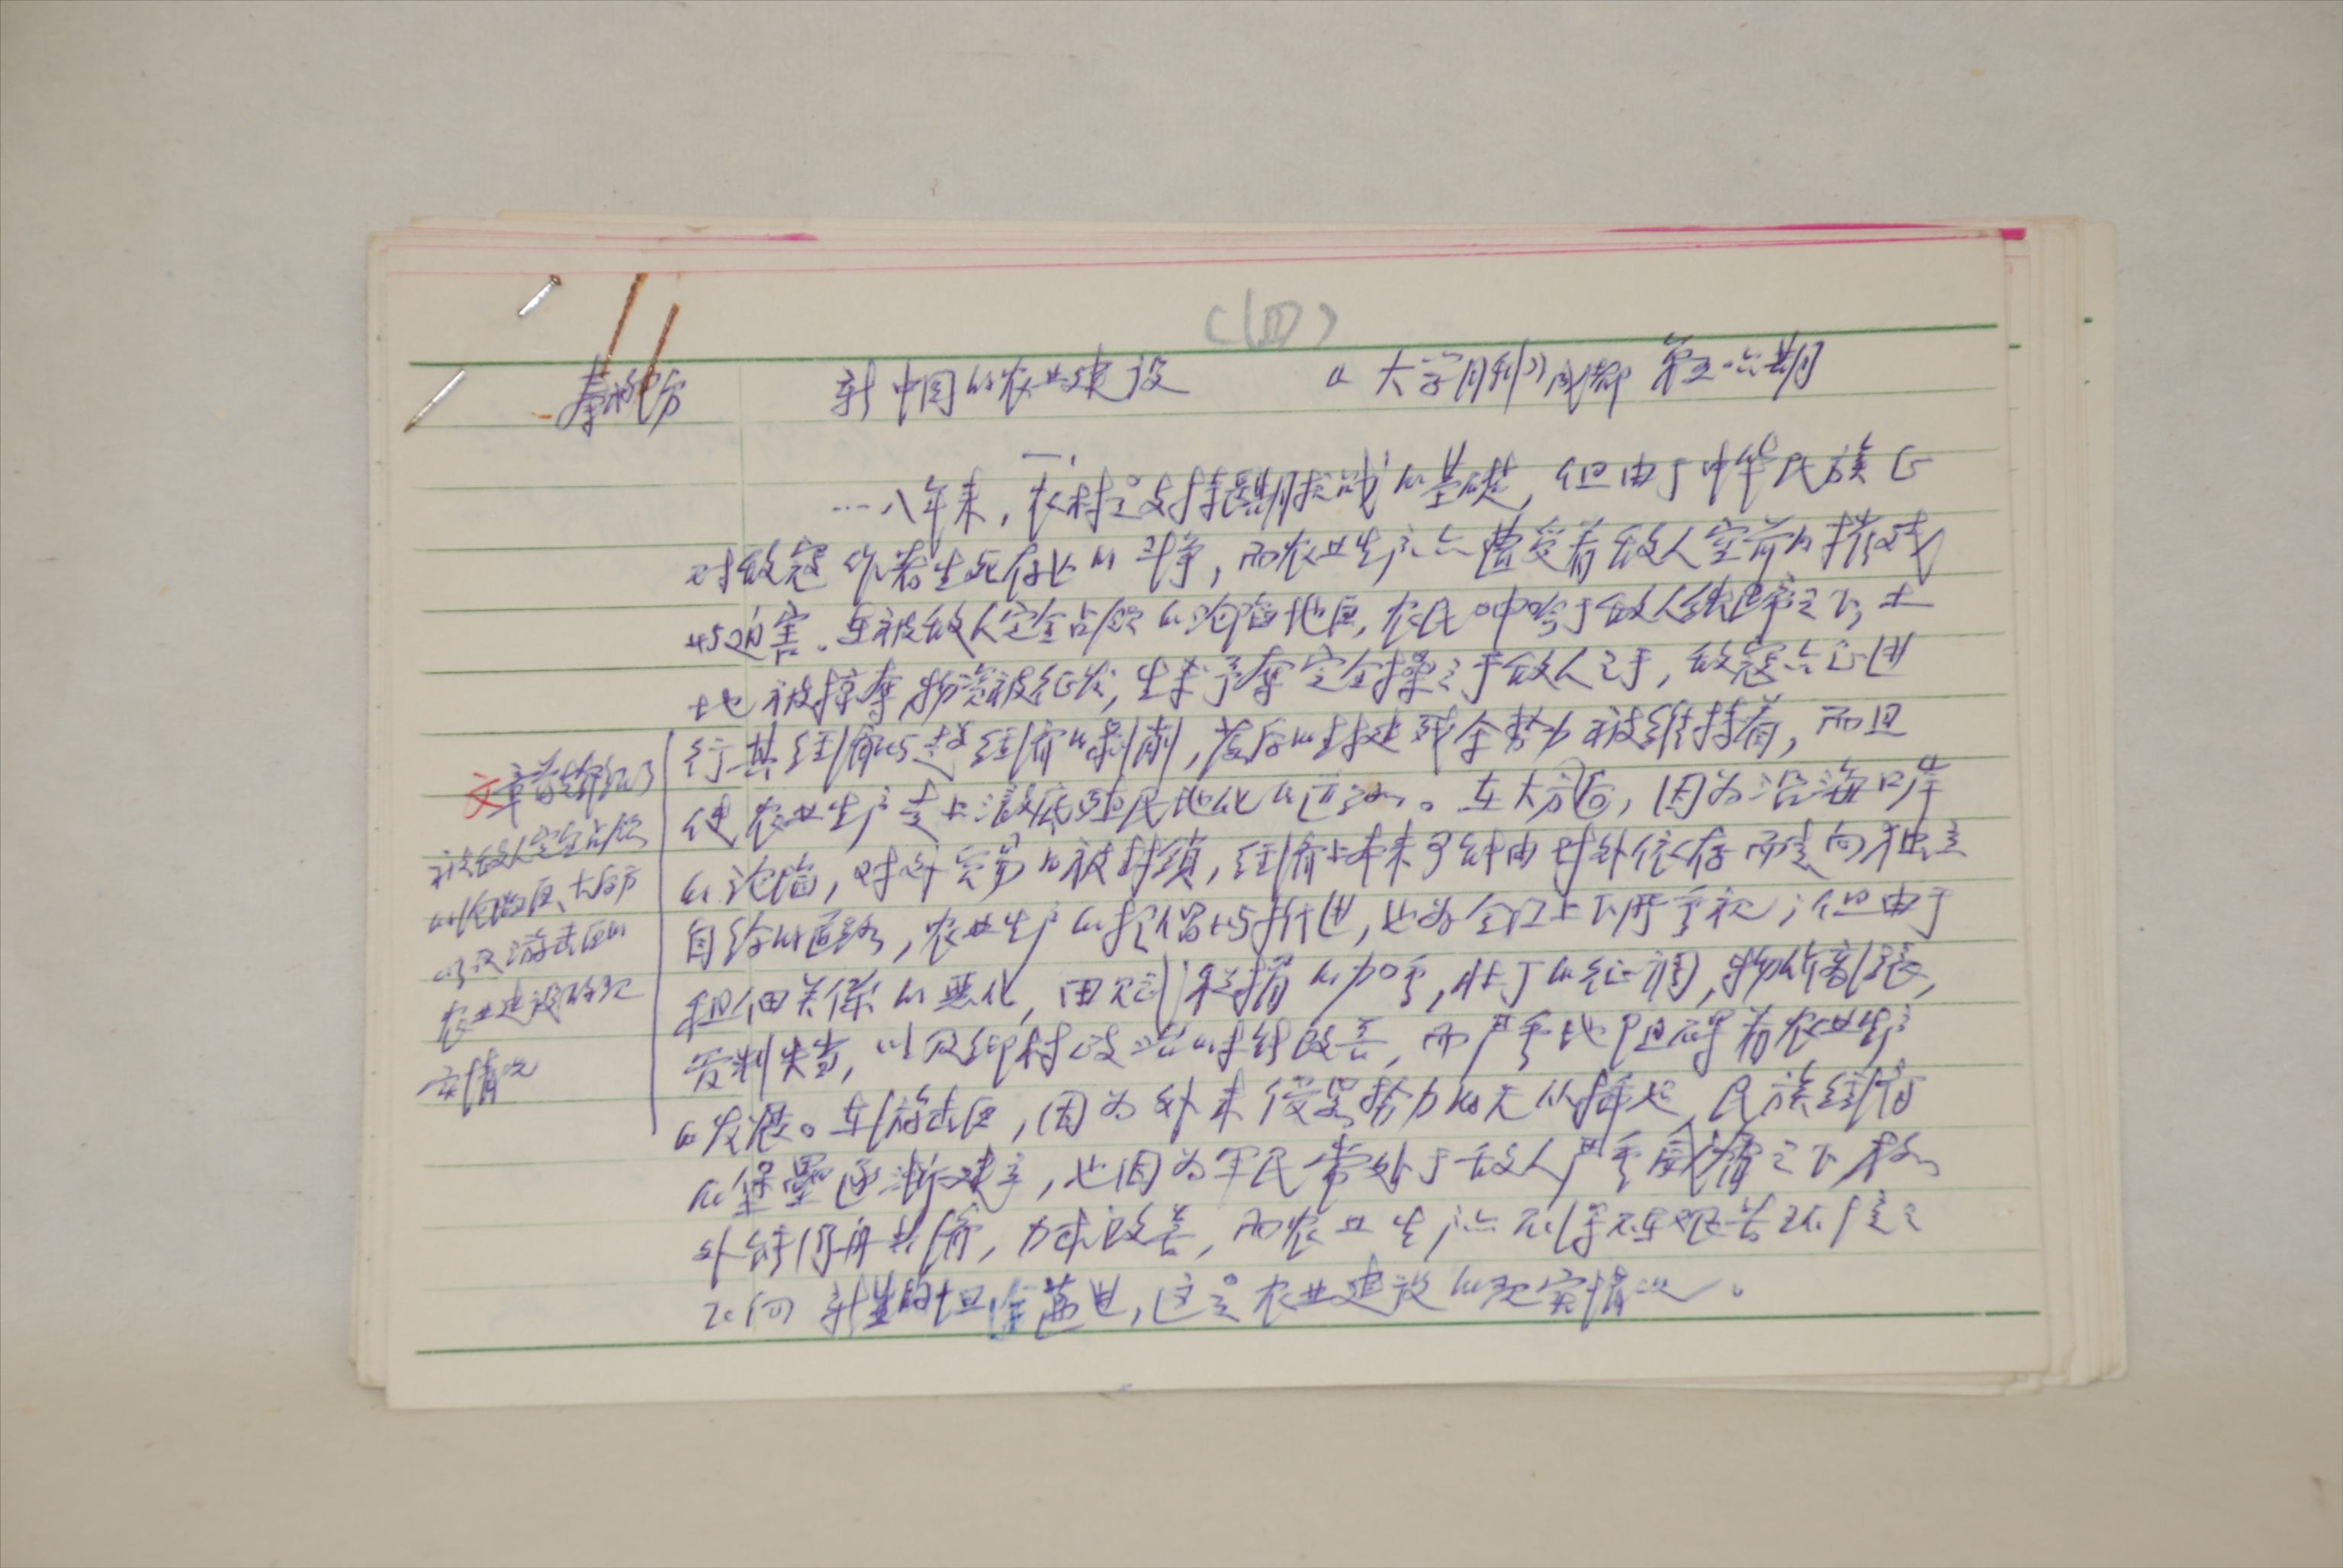 (四)
秦柳方 新中国的农业建设 《大学月刊》成都 第五·六期
一、
…八年来，农村是支持长期抗战的基础，但由于中华民族正
对敌寇作着生死存亡的斗争，而农业生产亦遭受着敌人空前的摧残
与迫害。在被敌人完全占领的沦陷地区，农民呻吟于敌人铁蹄之下，土
地被掠夺，物资被征发，生杀予夺完全操之于敌人之手，敌寇亦正进
行其经济与超经济的剥削，落后的封建残余势力被维持着，而且
使农业生产走上澈底殖民地化的道路。在大后方，因为沿海口岸
的沦陷，对外贸易的被封锁，经济上本来可能由对外依存而走向独立
自给的道路，农业生产的提倡与推进，也为全国上下所重视；但由于
租佃关系的恶化，田赋积谷的加重，壮丁的征调，物价高涨，
管制失当，以及乡村政治的未能改善，而严重地阻碍着农业生产
的发展。在游击区，因为外来侵略势力的无从插足，民族经济
的堡垒逐渐建立，也因为军民常处于敌人严重威胁之下，
外能同舟共济，力求改善，而农业生产亦不得不在艰苦环境之
下向新生的坦途迈进，这是农业建设的现实情况。
文章首先介绍了
被敌人完全占领
的沦陷区、大后方
以及游击区的
农业建设的现
实情况